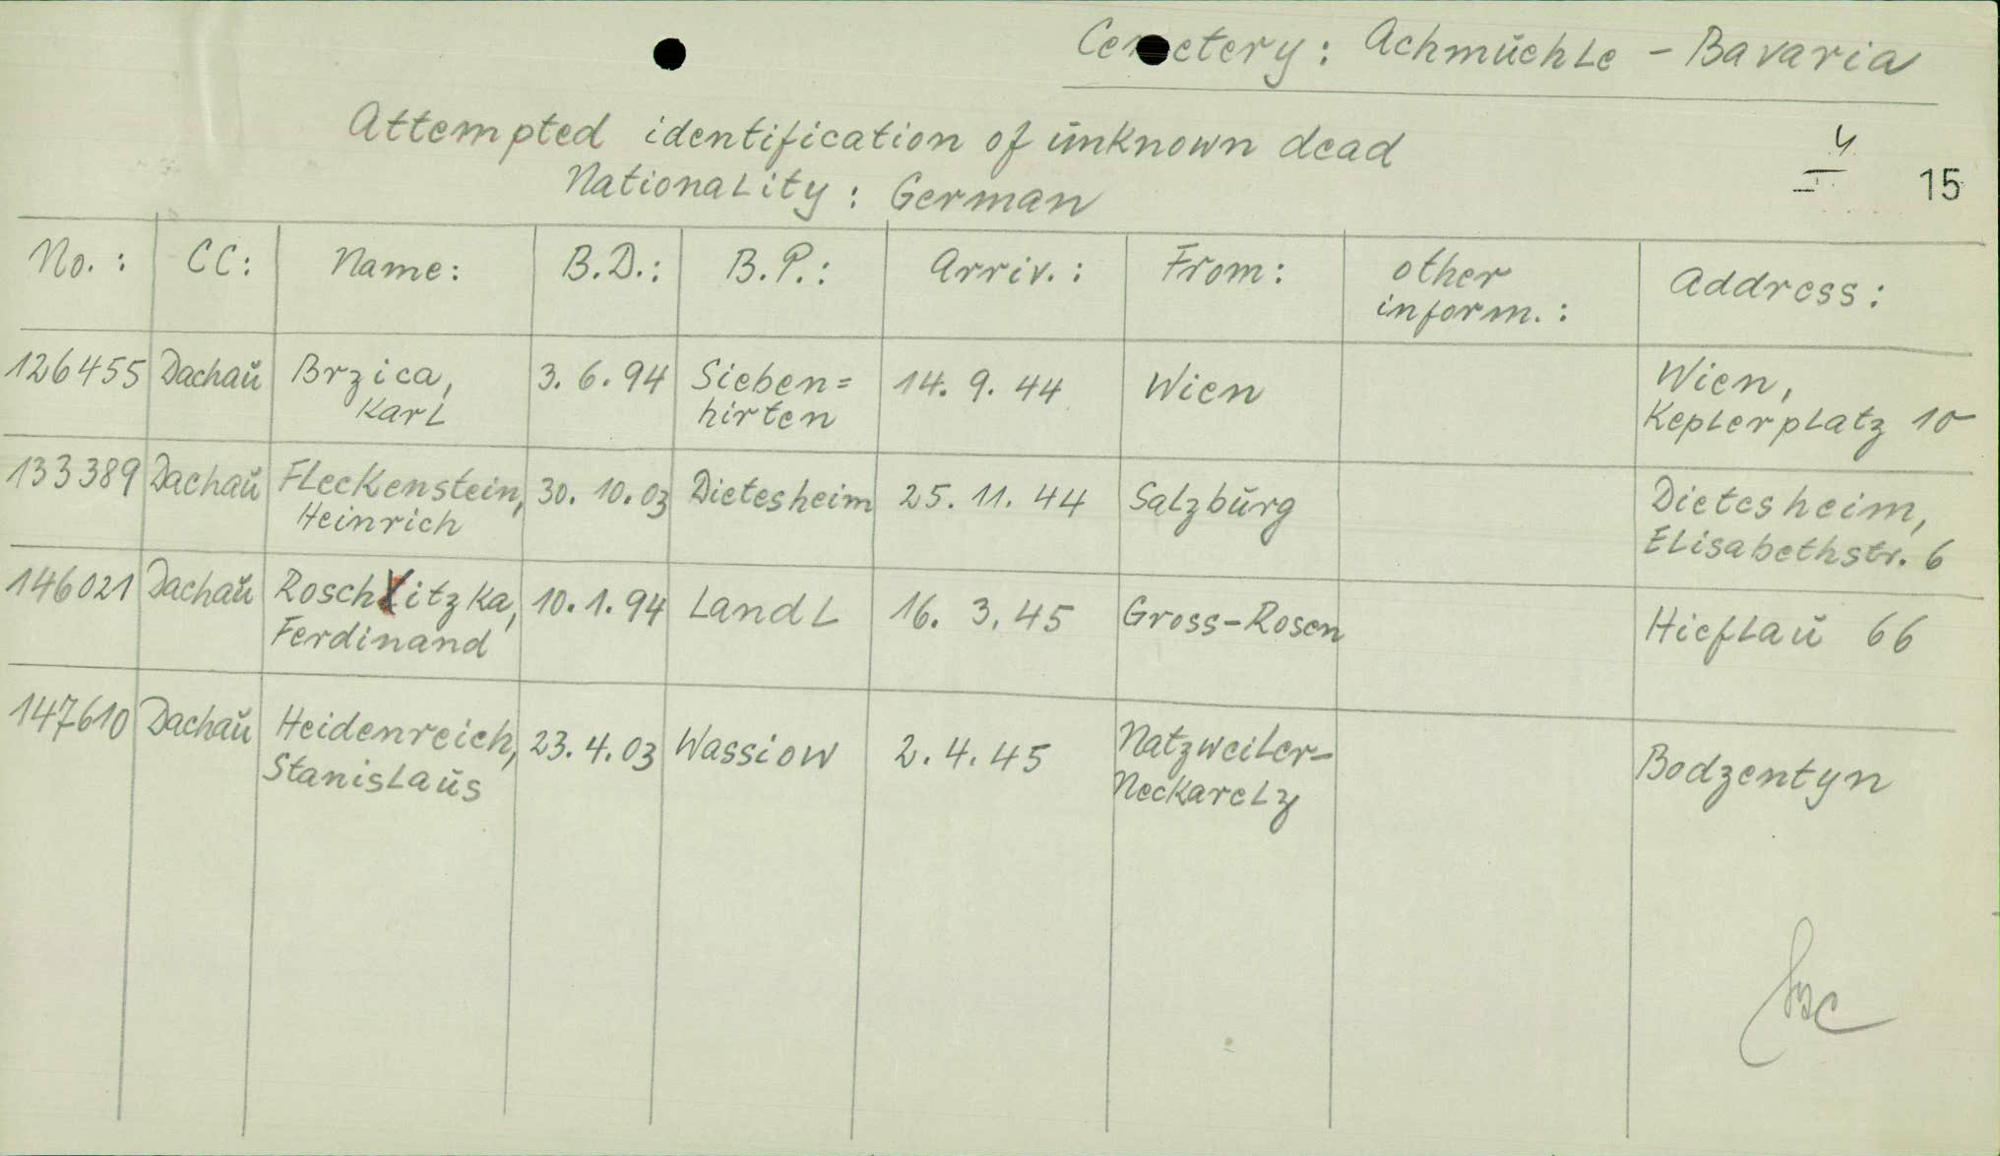 Cemetery: Achmüehle - Bavaria
Attempted identification of unknown dead
Nationality: German
4
15
No.: CC: Name: B.D.: B.P.: Arriv.: From: other inform.: Address:
126455 Dachau Brzica, Karl 3.6.94 Sieben=hirten 14.9.44 Wien Wien, Keplerplatz 10
133389 Dachau Fleckenstein, Heinrich 30.10.03 Dietesheim 25.11.44 Salzburg Dietesheim, Elisabethstr. 6
146021 Dachau Roschitzka, Ferdinand 10.1.94 Landl 16.3.45 Gross-Rosen Hieflau 66
147610 Dachau Heidenreich, Stanislaus 23.4.03 Wassiow 2.4.45 Natzweiler-Neckarelz Bodzentyn